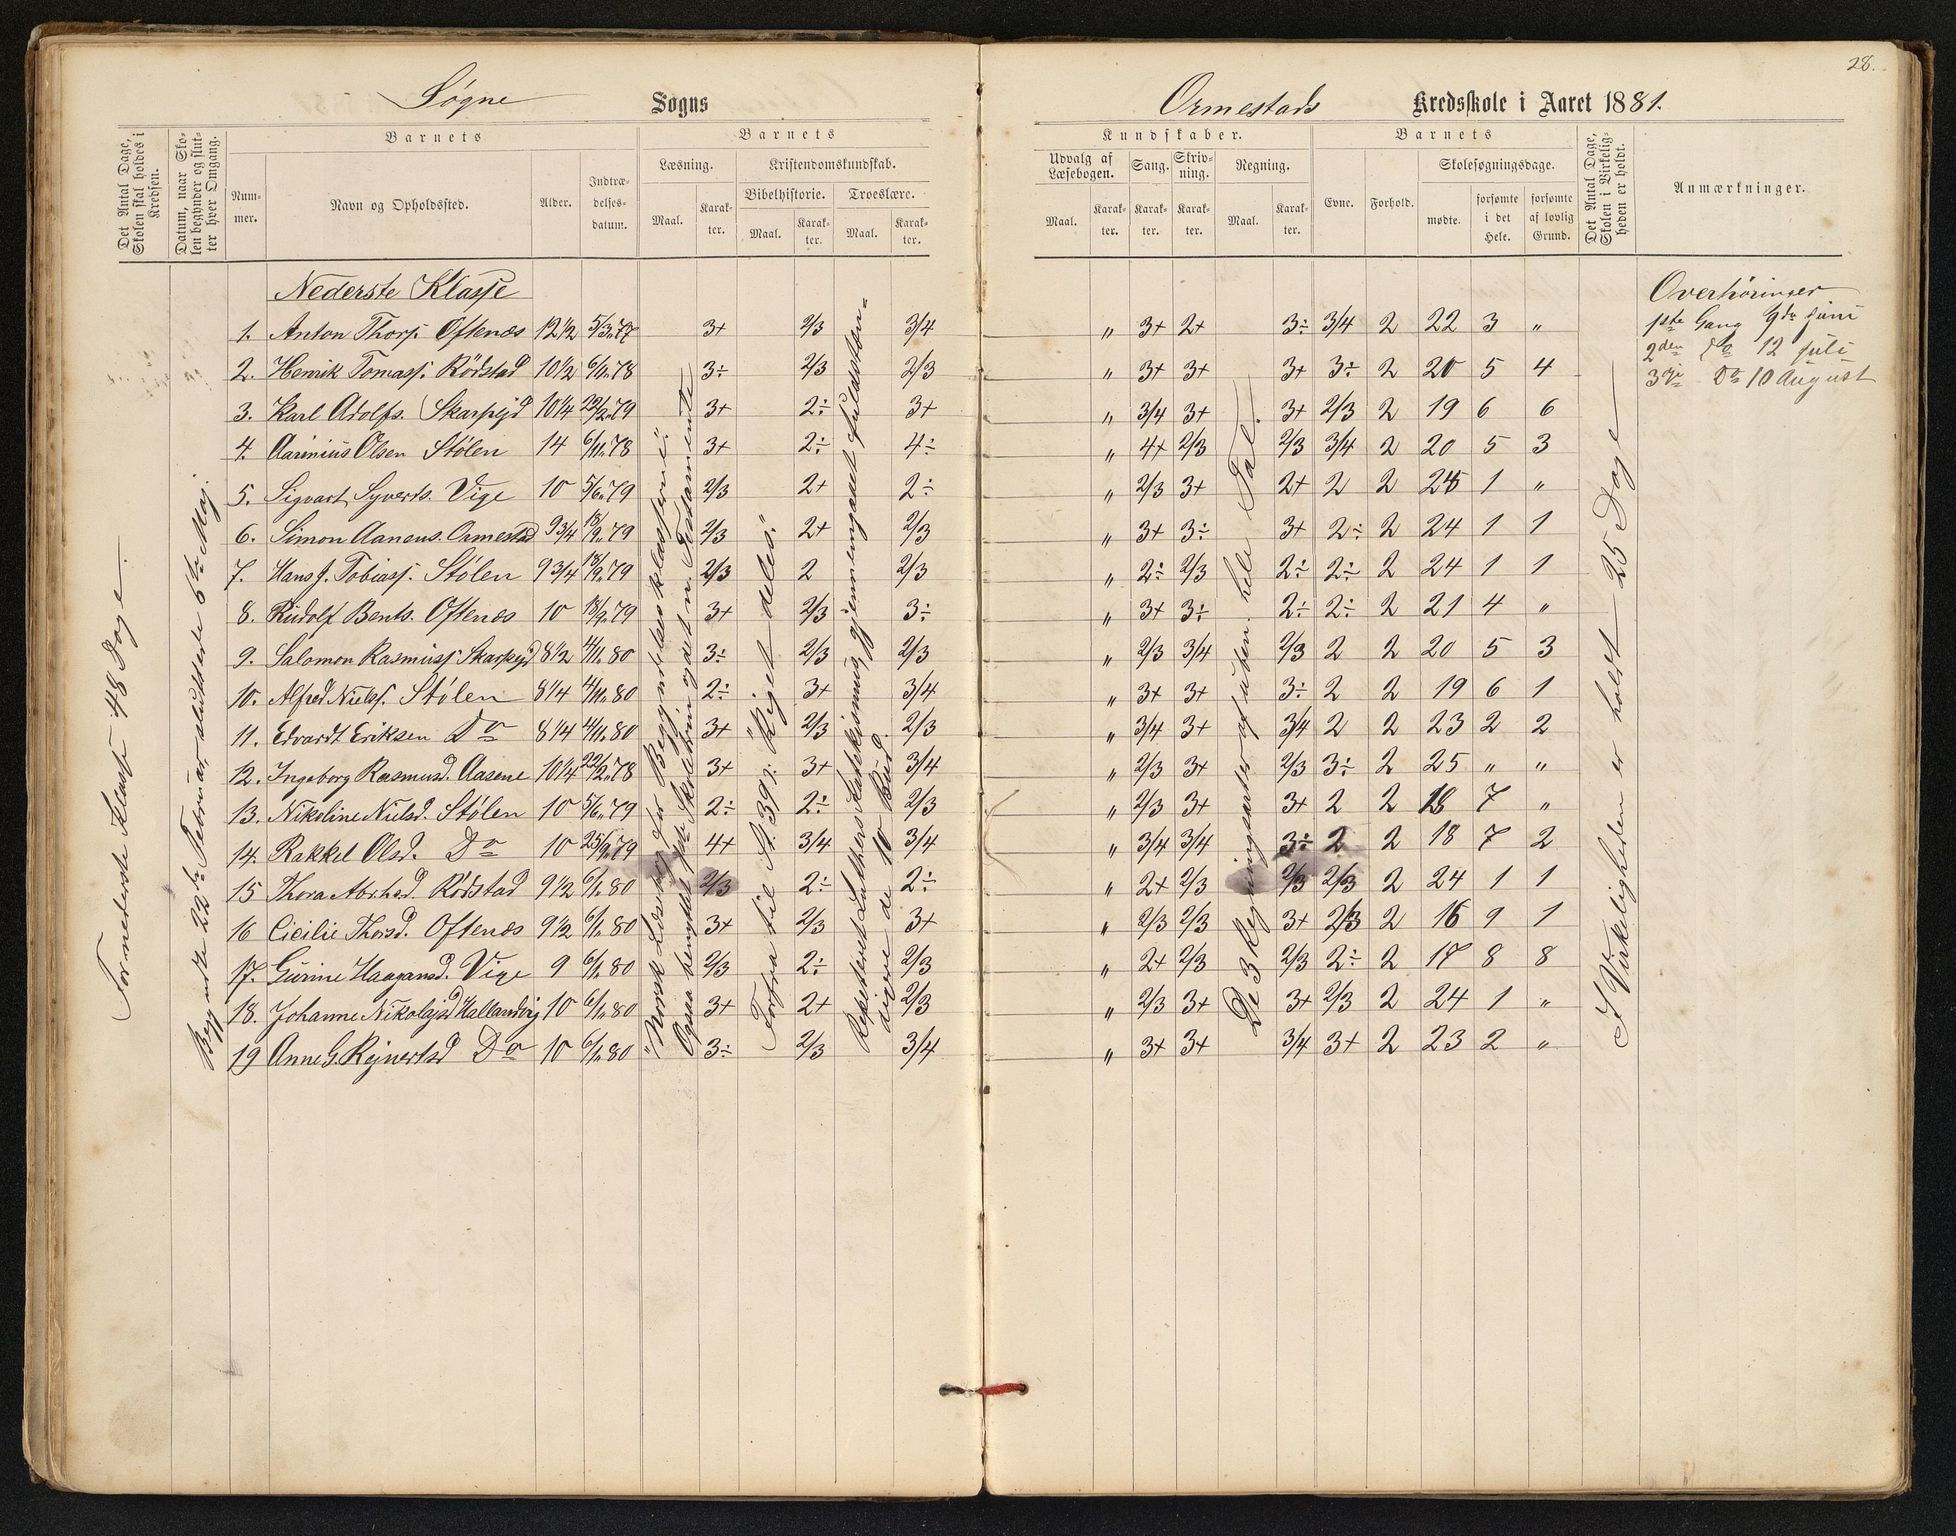 28.
Søgne Sogns
Ormestads Kredsskole i Aaret 1881.
Det Antal Dage, Skolen skal holdes i Kredsen.
Datum, naar Skolen begynder og slutter hver Omgang.
Barnets
Nummer.
Navn og Opholdssted.
Alder.
Indtrædelsesdatum.
Barnets
Læsning.
Maal.
Karakter.
Kristendomskundskab.
Bibelhistorie.
Maal.
Karakter.
Troeslære.
Maal.
Karakter.
Kundskaber.
Udvalg af Læsebogen.
Maal.
Karakter.
Sang.
Karakter.
Skrivning.
Karakter.
Regning.
Maal.
Karakter.
Barnets
Evne.
Forhold.
Skolesøgningsdage.
mødte.
forsømte i det Hele.
forsømte af lovlig Grund.
Det Antal Dage, Skolen i Virkeligheden er holdt.
Anmærkninger.
Nederste Klasse
1. Anton Thorsj. Oftenæs 12 1/2 5/3 77 3+ 2/3 3/4 " 3+ 2+ 3÷ 3/4 2 22 3 "
2. Henrik Tomassj. Rödstad 10 1/2 6/11 78 3÷ 2/3 2/3 " 3+ 3+ 3+ 3÷ 2 20 5 4
3. Karl Adolfs. Skarpejd 10 1/4 29/2 79 3+ 2÷ 3+ " 3/4 3+ 3+ 2/3 2 19 6 6
4. Olsen Stølen 14 6/11 78 3+ 2÷ 4÷ " 4+ 2/3 2/3 3/4 2 20 5 3
5. Sigvart Syverts. Vige 10 5/6 79 2/3 2+ 2÷ " 2/3 3+ 2+ 2 2 24 1 "
6. Simon Aaneus. Ormestad 9 3/4 18/9 79 2/3 2+ 2/3 " 3+ 3÷ 3+ 2÷ 2 24 1 1
7. Hans J. Tobiassj. Stølen 9 3/4 18/9 79 2/3 2 2/3 " 2÷ 2/3 2÷ 2÷ 2 24 1 1
8. Rudolf Bents. Oftenæs 10 18/9 79 3+ 2/3 3÷ " 3+ 3÷ 2÷ 2÷ 2 21 4 "
9. Salomon Rasmussj Skarpejd 8 1/2 4/11 80 3÷ 2/3 2/3 " 2/3 3/4 2/3 2 2 20 5 3
10. Alfred Nielsj. Stølen 8 1/4 4/11 80 2÷ 3+ 3/4 " 3+ 3+ 3÷ 2 2 19 6 1
11. Edvardt Eriksen Do 8 1/4 4/11 80 3+ 2/3 2/3 " 3/4 3+ 3/4 2 2 23 2 2
12. Ingeborg Rasmusd. Aasene 10 1/4 22/2 78 3+ 3+ 3/4 " 2/3 3+ 2/3 3÷ 2 25 " "
13. Nikoline Nielsd. Stølen 10 5/6 79 2÷ 2÷ 2/3 " 2/3 3+ 3+ 2 2 18 7 "
14. Rakkel Olsd. Do 10 25/9 79 4+ 3/4 3/4 " 3/4 3/4 3÷ 2 2 18 7 2
15 Thora Abrhed. Rödstad 9 1/2 6/1 80 2/3 2÷ 2÷ " 2+ 2/3 2/3 2/3 2 24 1 1
16 Cicilie Thorsd. Oftenæs 9 1/2 6/1 80 3+ 2/3 3+ " 2/3 2/3 3+ 2/3 2 16 9 1
17. Gurine Haagansd. Vige 9 6/1 80 2/3 2÷ 2/3 " 2+ 2/3 2/3 2÷ 2 17 8 8
18. Johanne Nikolajsd Hallandvig 10 6/1 80 3+ 2+ 2/3 " 2/3 3+ 3+ 2/3 2 24 1 "
19 Anne G. Rejnertsd Do 10 6/1 80 3÷ 2/3 3/4 " 3+ 3+ 3/4 3+ 2 23 2 "
For nederste Klasse 48 Dage.
Begyndte 22de Februar sluttede 6te Maj.
"Norsk Læsebog for Begyndelsesklasserne".
Ogsaa benyttet og det n. Testamente
Forfra til St. 39 "Riget deles".
Repeteret Luthers Katekismus, gjennemgaaet fuldstændigere de 10 Bud.
De 3 Regningsarter af uden. hele Tal.
I Virkeligheden er holdt 25 Dage
Overhöringer
1ste Gang 9de juni
2den Do 12 juli
3die Do 10 August